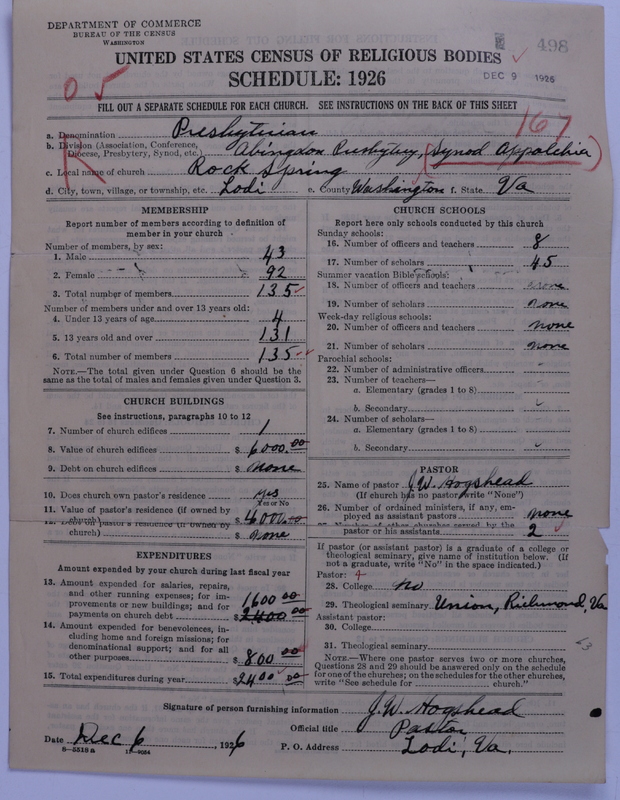 DEPARTMENT OF COMMERCE
BUREAU OF THE CENSUS
WASHINGTON
498
UNITED STATES CENSUS OF RELIGIOUS BODIES
SCHEDULE: 1926
DEC 9 1926
O 5
FILL OUT A SEPARATE SCHEDULE FOR EACH CHURCH. SEE INSTRUCTIONS ON THE BACK OF THIS SHEET
167
R
a. Denomination Presbyterian
b. Division (Association, Conference, Diocese, Presbytery, Synod, etc.) Abingdon Presbytery, (Synod Appalchia)
c. Local name of church Rock Spring
d. City, town, village, or township, etc. Lodi e. County Washington f. State Va
MEMBERSHIP
Report number of members according to definition of
member in your church
Number of members, by sex:
1. Male 43
2. Female 92
3. Total number of members 135
Number of members under and over 13 years old:
4. Under 13 years of age 4
5. 13 years old and over 131
6. Total number of members 135
NOTE.—The total given under Question 6 should be
same as the total of males and females given under Question 3.
CHURCH BUILDINGS
See instructions, paragraphs 10 to 12
7. Number of church edifices 1
8. Value of church edifices $ 6000.00
9. Debt on church edifices $ None
10. Does church own pastor's residence yes
Yes or No
11. Value of pastor's residence (if owned by
church) $ 4000.00
12. Debt on pastor's residence (if owned by
church) $ none
EXPENDITURES
Amount expended by your church during last fiscal year
13. Amount expended for salaries, repairs,
and other running expenses; for im-
provements or new buildings; and for
payments on church debt $ 1600 00
2400 00
14. Amount expended for benevolences, in-
cluding home and foreign missions; for
denominational support; and for all
other purposes $ 800 00
15. Total expenditures during year $ 2400 00
CHURCH SCHOOLS
Report here only schools conducted by this church
Sunday schools:
16. Number of officers and teachers 8
17. Number of scholars 45
Summer vacation Bible schools:
18. Number of officers and teachers none
19. Number of scholars none
Week-day religious schools:
20. Number of officers and teachers none
21. Number of scholars none
Parochial schools:
22. Number of administrative officers
23. Number of teachers—
a. Elementary (grades 1 to 8)
b. Secondary
24. Number of scholars—
a. Elementary (grades 1 to 8)
b. Secondary
PASTOR
25. Name of pastor J.W. Hogshead
(If church has no pastor, write "None")
26. Number of ordained ministers, if any, em-
ployed as assistant pastors none
27. Number of other churches served by the
pastor or his assistants 2
If pastor (or assistant pastor) is a graduate of a college or
theological seminary, give name of institution below. (If
not a graduate, write "No" in the space indicated.)
Pastor: 4
28. College no
29. Theological seminary Union, Richmond, Va
Assistant pastor:
30. College
31. Theological seminary
NOTE.—Where one pastor serves two or more churches,
Questions 28 and 29 should be answered only on the schedule
for one of the churches; on the schedules for the other churches,
write "See schedule for church."
Signature of person furnishing information J.W. Hogshead
Official title Pastor
Date Dec 6, 1926 P. O. Address Lodi, Va.
8—5518 a